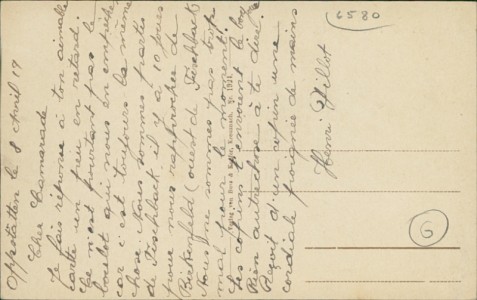 6580
Oppstetten le 8 Avril 19
Cher Camarade
Je fais réponse à ton aimable
carte un peu en retard.
Ce n'est pourtant pas le
boulot qui nous en empêche
car c'est toujours la même
chose. Nous sommes partis
de Fischbach il y a 10 jours
pour nous rapprocher de
Birkenfeld (ouest de Fischbach)
Nous ne sommes pas trop
mal pour le moment.
Les copains t'envoient le bonj
Rien autre chose à te dire
Reçoit d'un copain une
cordiale poignée de mains
Henri Villot
6